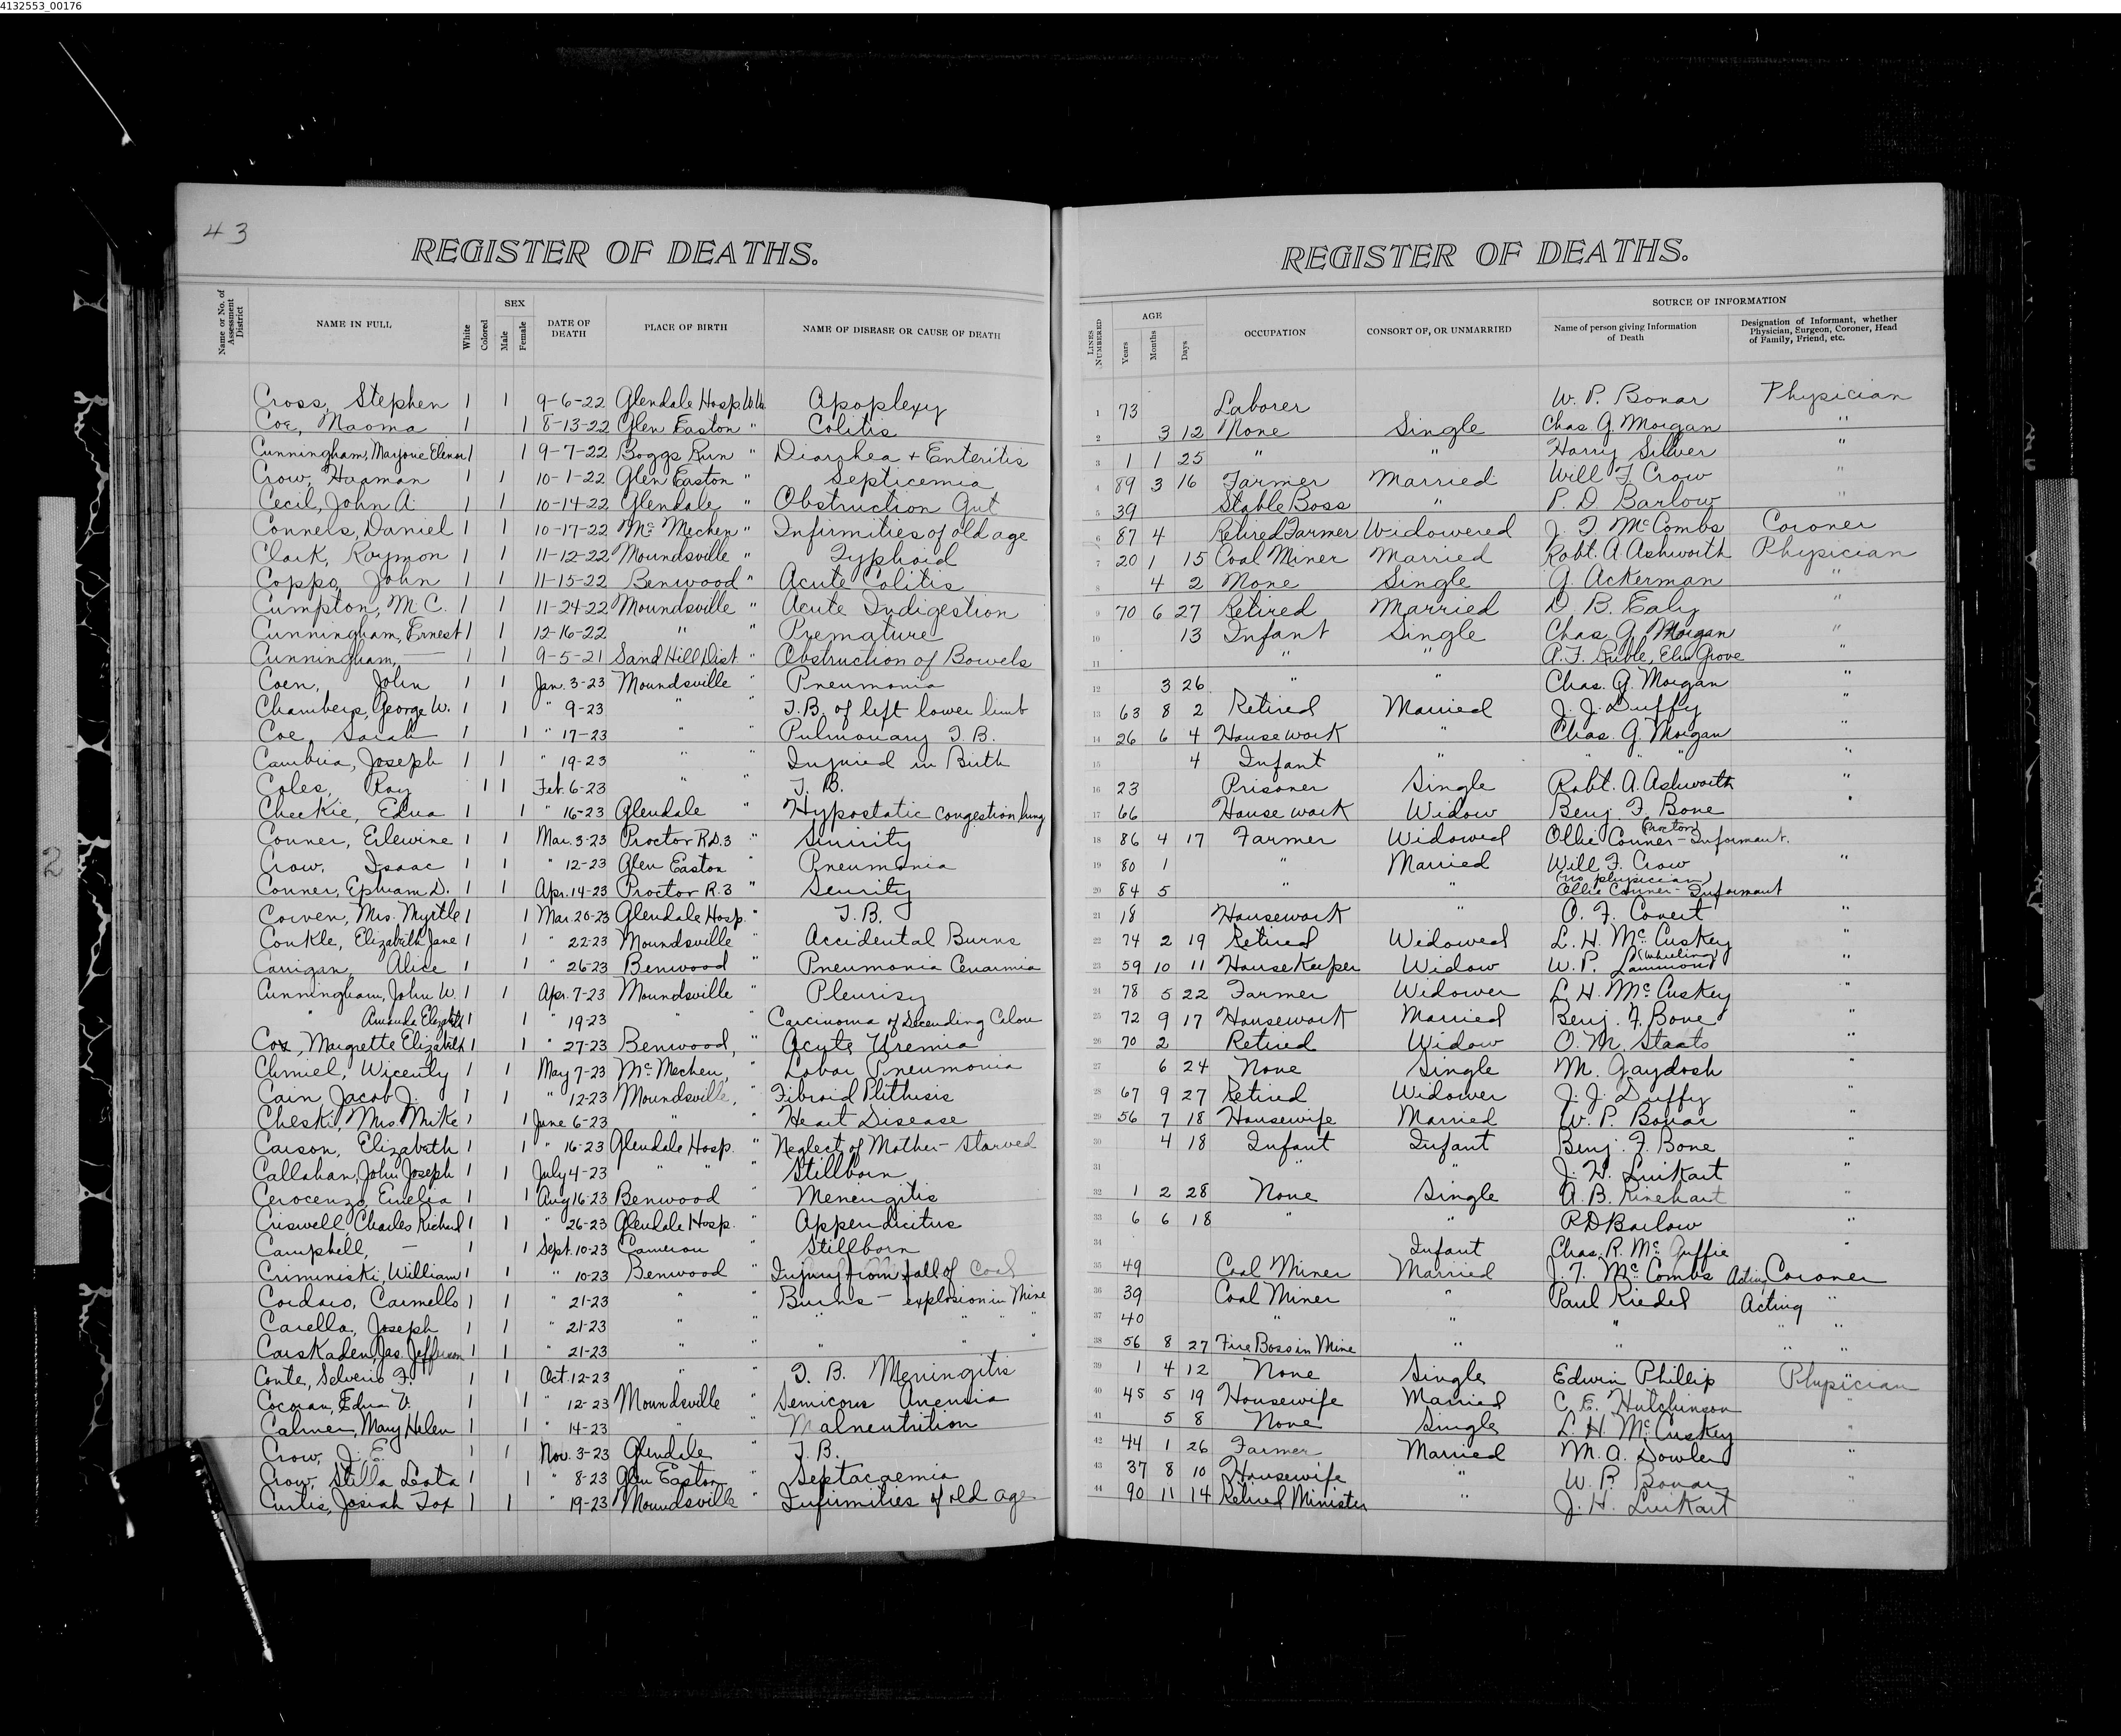 4132553_00176
43
REGISTER OF DEATHS.
Name or No. of Assessment District
NAME IN FULL
White
Colored
SEX
Male
Female
DATE OF DEATH
PLACE OF BIRTH
NAME OF DISEASE OR CAUSE OF DEATH
Cross, Stephen 1 1 9-6-22 Glendale Hosp. W.Va Apoplexy
Coe, Naoma 1 1 8-13-22 Glen Easton " Colitis
Cunningham, Marjorie Elenor 1 1 9-7-22 Boggs Run " Diarrhea + Enteritis
Crow, Haaman 1 1 10-1-22 Glen Easton " Septicemia
Cecil, John A. 1 1 10-14-22 Glendale " Obstruction Gut
Conners, Daniel 1 1 10-17-22 Mc Mechen " Infirmities of old age
Clark, Raymon 1 1 11-12-22 Moundsville " Typhoid
Coppo, John 1 1 11-15-22 Benwood " Acute Colitis
Cumpton, M C. 1 1 11-24-22 Moundsville " Acute Indigestion
Cunningham, Ernest 1 1 12-16-22 " " Premature
Cunningham, — 1 1 9-5-21 Sand Hill Dist " Obstruction of Bowels
Coen, John 1 1 Jan. 3-23 Moundsville " Pneumonia
Chambers, George W. 1 1 " 9-23 " " T.B. of left lower limb
Coe, Sarah 1 1 " 17-23 " " Pulmonary T.B.
Cambria, Joseph 1 1 " 19-23 " " Injured in Birth
Coles, Ray 1 1 Feb. 6-23 " " T. B.
Cheekie, Edna 1 1 " 16-23 Glendale " Hypostatic congestion lung
Conner, Erlewine 1 1 Mar. 3-23 Proctor R.D.3 " Sinirity
Crow, Isaac 1 1 " 12-23 Glen Easton " Pneumonia
Conner, Ephriam D. 1 1 Apr. 14-23 Proctor R.3 " Senrity
Corven, Mrs. Myrtle 1 1 Mar. 20-23 Glendale Hosp. " T.B.
Conkle, Elizabeth Jane 1 1 " 22-23 Moundsville " Accidental Burns
Carrigan, Alice 1 1 " 26-23 Benwood " Pneumonia
Cunningham, John W. 1 1 Apr. 7-23 Moundsville " Pleurisy
" Amanda Elizabeth 1 1 " 19-23 " " Carcinoma of Decending Colon
Cox, Margrette Elizabeth 1 1 " 27-23 Benwood, " Acute Uremia
Chmiel, Wicenty 1 1 May 7-23 Mc Mechen, " Lobar Pneumonia
Cain, Jacob J. 1 1 " 12-23 Moundsville, " Fibroid Plithisis
Cheski, Mrs. Mike 1 1 June 6-23 " " Heart Disease
Carson, Elizabeth 1 1 " 16-23 Glendale Hosp. " Neglect of Mother - Starved
Callahan, John Joseph 1 1 July 4-23 " " " Stillborn
Cerocenzo, Emelia 1 1 Aug 16-23 Benwood " Menengitis
Criswell, Charles Richard 1 1 " 26-23 Glendale Hosp. " Appendicitus
Campbell, — 1 1 Sept. 10-23 Cameron " Stillborn
Criminiski, William 1 1 " 10-23 Benwood " Injury from fall of Coal
Cordaro, Carmello 1 1 " 21-23 " " Burns - explosion in Mine
Carella, Joseph 1 1 " 21-23 " " " " "
Carskaden, Jas. Jefferson 1 1 " 21-23 " " " " "
Conte, Selverio F. 1 1 Oct. 12-23 " " T. B. Meningitis
Cocoran, Edna V. 1 1 " 12-23 Moundsville " Semicous Anemia
Calmer, Mary Helen 1 1 " 14-23 " " Malneutrition
Crow, J. E. 1 1 Nov. 3-23 Glendale " T.B.
Crow, Stilla Leota 1 1 " 8-23 Glen Easton " Septacaemia
Curtis, Josiah Fox 1 1 " 19-23 Moundsville " Infirmities of old age
REGISTER OF DEATHS.
LINES NUMBERED
AGE
Years
Months
Days
OCCUPATION
CONSORT OF, OR UNMARRIED
SOURCE OF INFORMATION
Name of person giving Information of Death
Designation of Informant, whether Physician, Surgeon, Coroner, Head of Family, Friend, etc.
1 73 Laborer W. P. Bonar Physician
2 3 12 None Single Chas G. Morgan "
3 1 1 25 " " Harry Silver "
4 89 3 16 Farmer Married Will F Crow "
5 39 Stable Boss " P. D. Barlow "
6 87 4 Retired Farmer Widowered J. T McCombs Coroner
7 20 1 15 Coal Miner Married Robt. A Ashworth Physician
8 4 2 None Single G. Ackerman "
9 70 6 27 Retired Married D. B. Ealy "
10 13 Infant Single Chas. G. Morgan "
11 " " A. F. Ruble, Elm Grove "
12 3 26 " " Chas. G. Morgan "
13 63 8 2 Retired Married J. J. Duffy "
14 26 6 4 Housework " Chas. G. Morgan "
15 4 Infant " " "
16 23 Prisoner Single Robt. A. Ashworth "
17 66 House work Widow Benj. F. Bone "
18 86 4 17 Farmer Widowed Ollie Conner - Proctor Informant.
19 80 1 " Married Will F. Crow "
20 84 5 " " (no physician) Ollie Conner - Informant
21 18 Housework " O. F. Covert "
22 74 2 19 Retired Widowed L. H. McCuskey "
23 59 10 11 House Keeper Widow W. P. Sammons (Wheeling) "
24 78 5 22 Farmer Widower L H. McCuskey "
25 72 9 17 Housework Married Benj. F. Bone "
26 70 2 Retired Widow O. M. Staats "
27 6 24 None Single M. Gaydosh "
28 67 9 27 Retired Widower J. J. Duffy "
29 56 7 18 Housewife Married W. P. Bonar "
30 4 18 Infant Infant Benj. F. Bone "
31 " " J. H. Luikart "
32 1 2 28 None Single A. B. Rinehart "
33 6 6 18 " " P D Barlow "
34 Infant Chas. R. McGuffie "
35 49 Coal Miner Married J. T. McCombs Acting Coroner
36 39 Coal Miner " Paul Riedel Acting "
37 40 " " " " "
38 56 8 27 Fire Boss in Mine " " " "
39 1 4 12 None Single Edwin Phillip Physician
40 45 5 19 Housewife Married C. E. Hutchinson "
41 5 8 None Single L. H. McCuskey "
42 44 1 26 Farmer Married M. A. Dowler "
43 37 8 10 Housewife " W. P. Bonar "
44 90 11 14 Retired Minister " J. H. Luikart "
2